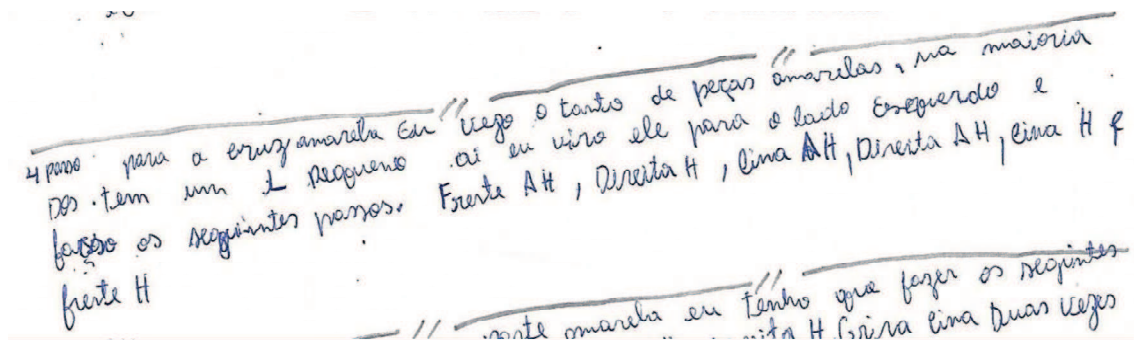 4 passo para a cruz amarela Eu vego o tanto de peças amarelas, na maioria
Das tem um L pequeno ai eu viro ele para o lado esquerdo e
faço os seguintes passos. Frente AH, Direita H, Cima AH, Direita AH, Cima H e
frente H
parte amarela eu tenho que fazer os seguintes
H, Cima Duas vezes